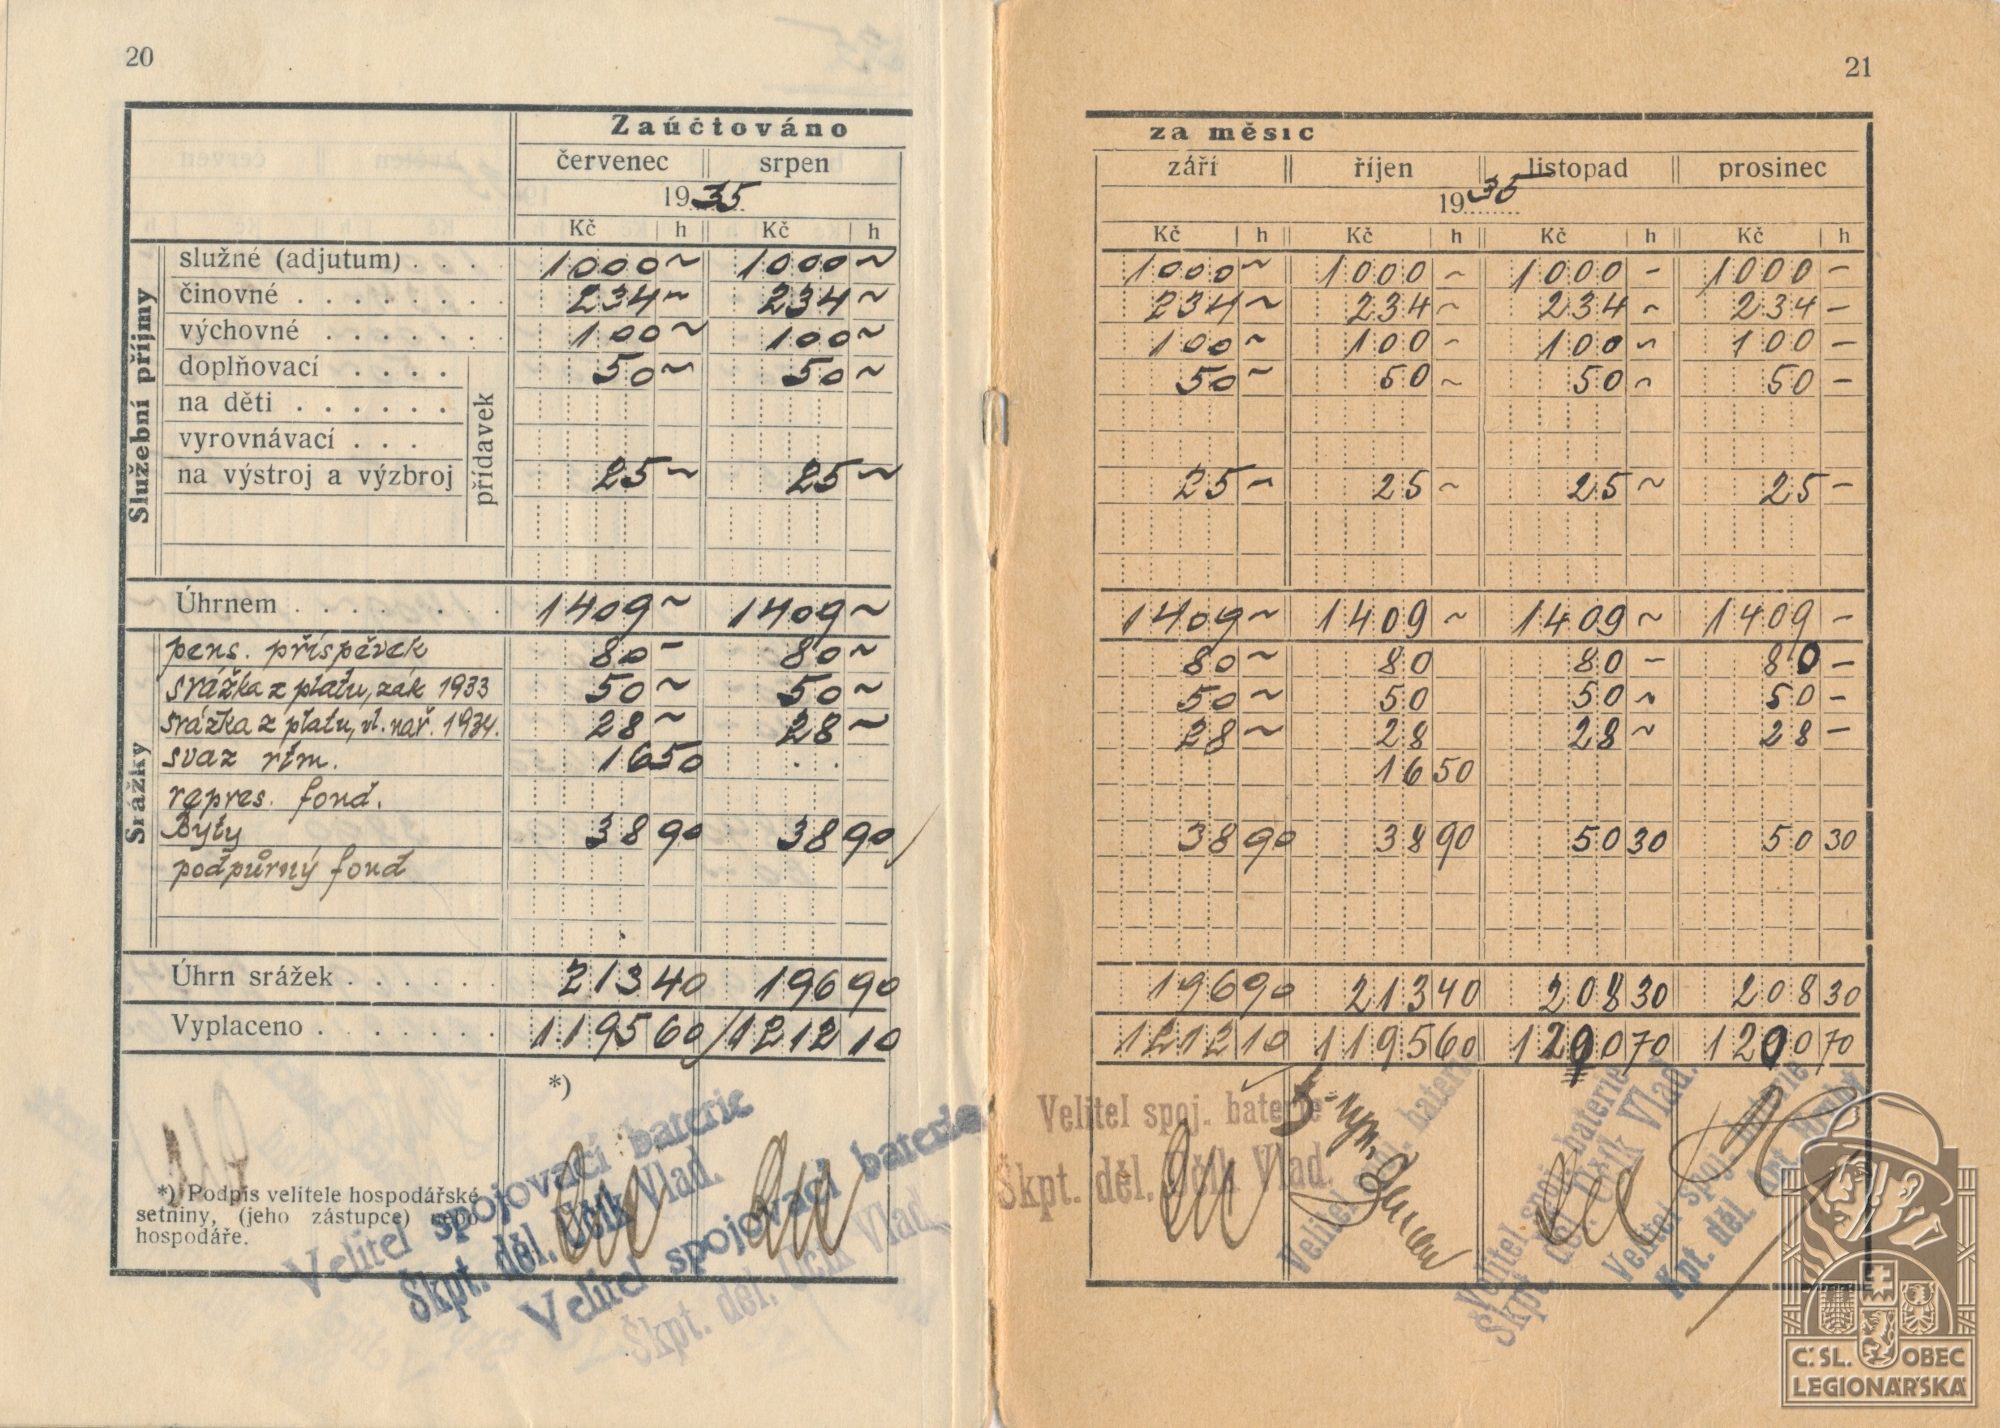 20
Zaúčtováno
červenec srpen
1935
Kč h Kč h
Služební příjmy
služné (adjutum) . . . . 1000 ~ 1000 ~
činovné . . . . . . . . 234 ~ 234 ~
výchovné . . . . . . . 100 ~ 100 ~
doplňovací . . . . 50 ~ 50 ~
na děti . . . . . .
vyrovnávací . . .
na výstroj a výzbroj 25 ~ 25 ~
přídavek
Úhrnem . . . . . . . 1409 ~ 1409 ~
Srážky
pens. příspěvek 80 – 80 ~
srážka z platu, zák 1933 50 ~ 50 ~
srážka z platu, vl. nař. 1934. 28 ~ 28 ~
svaz rtm. 16 50 . .
repres. fond.
Byty 38 90 38 90
podpůrný fond
Úhrn srážek . . . . . . 213 40 196 90
Vyplaceno . . . . . . . 1195 60 1212 10
*)
*) Podpis velitele hospodářské
setniny, (jeho zástupce) nebo
hospodáře.
Velitel spojovací baterie
Škpt. děl. Učík Vlad.
Velitel spojovací baterie
Škpt. děl. Učík Vlad.
21
za měsíc
září říjen listopad prosinec
1935
Kč h Kč h Kč h Kč h
1000 ~ 1000 ~ 1000 – 1000 –
234 ~ 234 ~ 234 ~ 234 –
100 ~ 100 – 100 ~ 100 –
50 ~ 50 ~ 50 ~ 50 –
25 – 25 ~ 25 ~ 25 –
1409 ~ 1409 ~ 1409 ~ 1409 –
80 ~ 80 80 – 80 –
50 ~ 50 50 ~ 50 –
28 ~ 28 28 ~ 28 –
16 50
38 90 38 90 50 30 50 30
196 90 213 40 208 30 208 30
1212 10 1195 60 1200 70 1200 70
Velitel spoj. baterie
Škpt. děl. Učík Vlad.
Velitel spoj. baterie
Velitel spoj. baterie
Škpt. děl. Učík Vlad.
Velitel spoj. baterie
Kpt. děl.
Č. SL. OBEC
LEGIONÁŘSKÁ